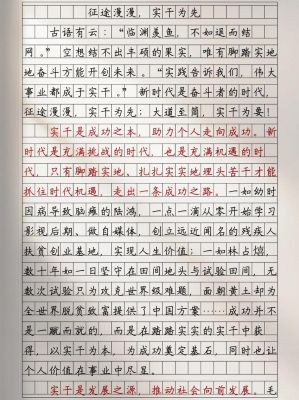 征途漫漫，实干为先
古语有云：“临渊羡鱼，不如退而结
网。”空想结不出丰硕的果实，唯有脚踏实地
地奋斗方能开创未来。“实践告诉我们，伟大
事业都成于实干。”新时代是奋斗者的时代，
征途漫漫，实干为先；大道至简，实干为要！
实干是成功之本，助力个人走向成功。新
时代是充满挑战的时代，也是充满机遇的时
代，只有脚踏实地、扎扎实实地埋头苦干才能
抓住时代机遇，走出一条成功之路。一如幼时
因病导致脑瘫的陆鸿，一点一滴从零开始学习
影视后期、做自媒体，创立远近闻名的残疾人
扶贫创业基地，实现人生价值；一如林占熺，
数十年如一日坚守在田间地头与试验田间，无
数次试验只为攻克世界级难题，面朝黄土却为
全世界脱贫致富提供了中国方案……成功并不
是一蹴而就的，而是在踏踏实实的实干中获
得，以实干为本，为成功奠定基石，同时也让
个人价值在事业中尽显。
实干是发展之源，推动社会向前发展。毛